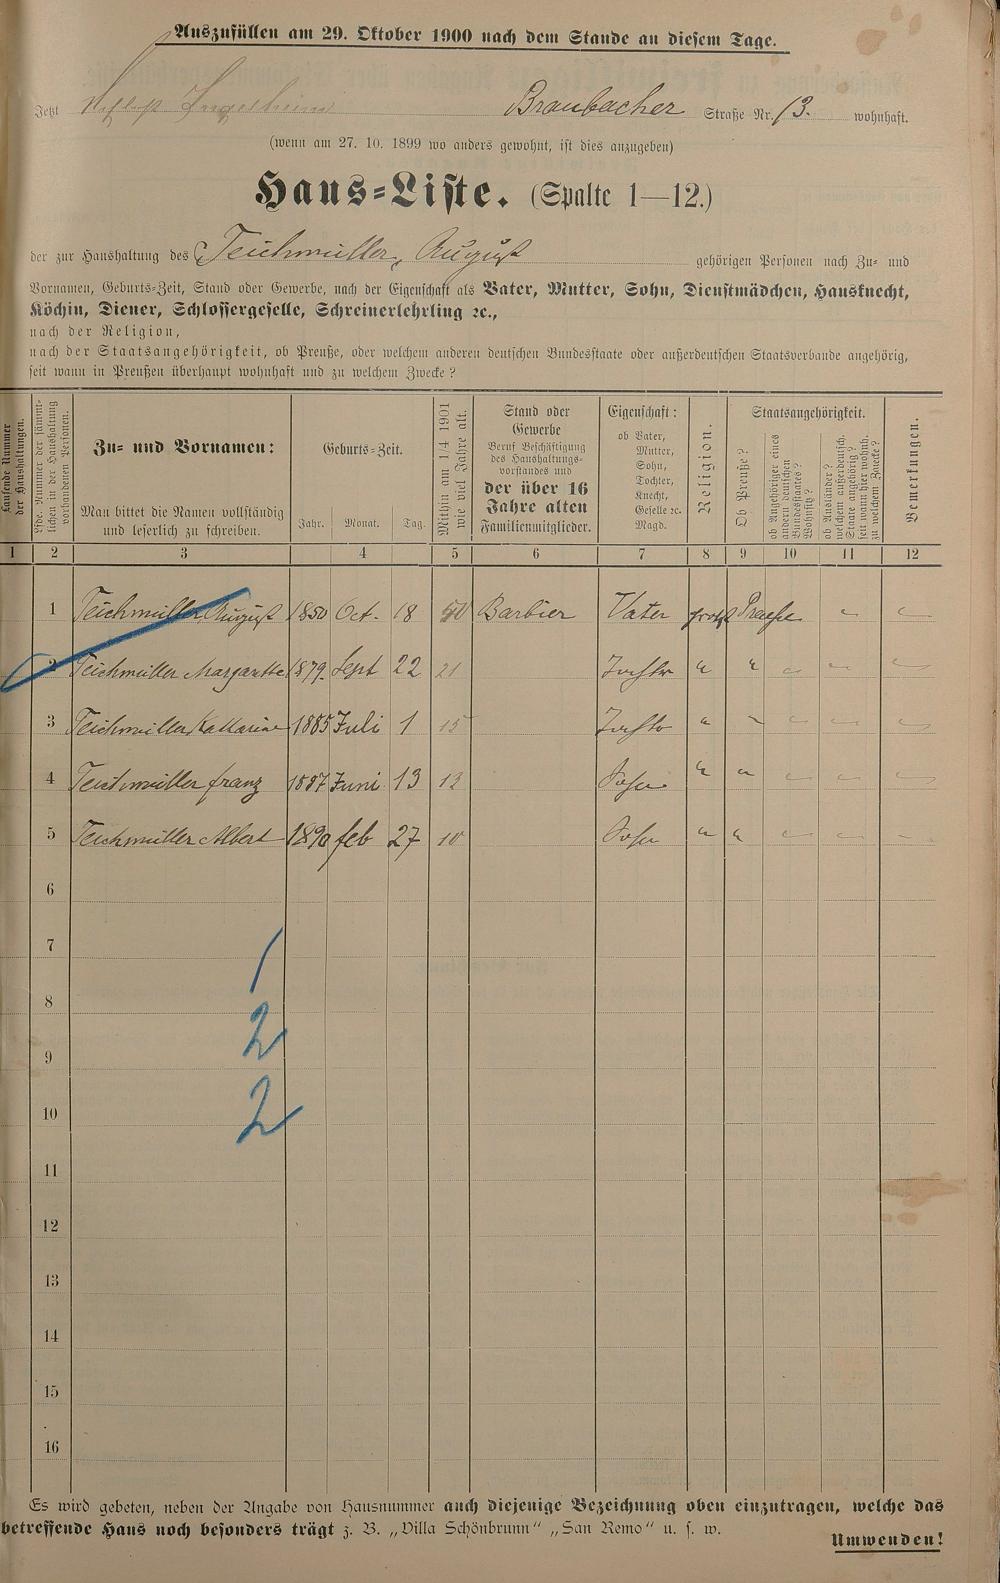 Auszufüllen am 29. Oktober 1900 nach dem Stande an diesem Tage.
Jetzt Braubacher Straße Nr. 13. wohnhaft.
(wenn am 27. 10. 1899 wo anders gewohnt, ist dies anzugeben)
Haus-Liste. (Spalte 1—12.)
der zur Haushaltung des Teichmüller, August gehörigen Personen nach Zu- und
Vornamen, Geburts-Zeit, Stand oder Gewerbe, nach der Eigenschaft als Vater, Mutter, Sohn, Dienstmädchen, Hausknecht,
Köchin, Diener, Schlossergeselle, Schreinerlehrling ꝛc.,
nach der Religion,
nach der Staatsangehörigkeit, ob Preuße, oder welchem anderen deutschen Bundesstaate oder außerdeutschen Staatsverbande angehörig,
seit wann in Preußen überhaupt wohnhaft und zu welchem Zwecke?
Laufende Nummer
der Haushaltungen.
Lfde. Nummer der sämmt-
lichen in der Haushaltung
vorhandenen Personen.
Zu- und Vornamen:
Man bittet die Namen vollständig
und leserlich zu schreiben.
Geburts-Zeit.
Jahr. Monat. Tag.
Mithin am 1/4 1901
wie viel Jahre alt.
Stand oder
Gewerbe
Beruf Beschäftigung
des Haushaltungs-
vorstandes und
der über 16
Jahre alten
Familienmitglieder.
Eigenschaft:
ob Vater,
Mutter,
Sohn,
Tochter,
Knecht,
Geselle ꝛc.
Magd.
Religion.
Staatsangehörigkeit.
Ob Preuße?
ob Angehöriger eines
andern deutschen
Bundesstaates?
Wohnsitz?
ob Ausländer?
welchem außerdeutsch.
Staate angehörig?
seit wann hier wohnh.
zu welchem Zwecke?
Bemerkungen.
1 2 3 4 5 6 7 8 9 10 11 12
1 Teichmüller August 1850 Oct. 18 50 Barbier Vater prot Preuße " "
2 Teichmüller Margarethe 1879. Sept 22 21 Tochter " " " " "
3 Teichmüller Katharine 1885 Juli 1 15 Tochter " " " " "
4 Teichmüller Franz 1887 Juni 13 13 Sohn " " " " "
5 Teichmüller Albert 1890 feb 27 10 Sohn " " " " "
6
7
1
8
2
9
10
2
11
12
13
14
15
16
Es wird gebeten, neben der Angabe von Hausnummer auch diejenige Bezeichnung oben einzutragen, welche das
betreffende Haus noch besonders trägt z. B. „Villa Schönbrunn“ „San Remo“ u. s. w.
Umwenden!